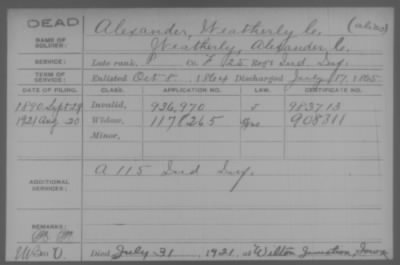 DEAD
Alexander, Weatherly C. (alias)
NAME OF SOLDIER: Weatherly, Alexander C.
SERVICE: Late rank, P Co. F 25 Reg't Ind Inf.
TERM OF SERVICE: Enlisted Oct 8 1864 Discharged July 17, 1865
DATE OF FILING. CLASS. APPLICATION NO. LAW. CERTIFICATE NO.
1890 Sept 29 Invalid, 936,970 983713
1921 Aug 20 Widow, 1178265 908311
Minor,
ADDITIONAL SERVICES: A 115 Ind Inf.
REMARKS:
Died July 31 1921, at Wilton Junction, Iowa